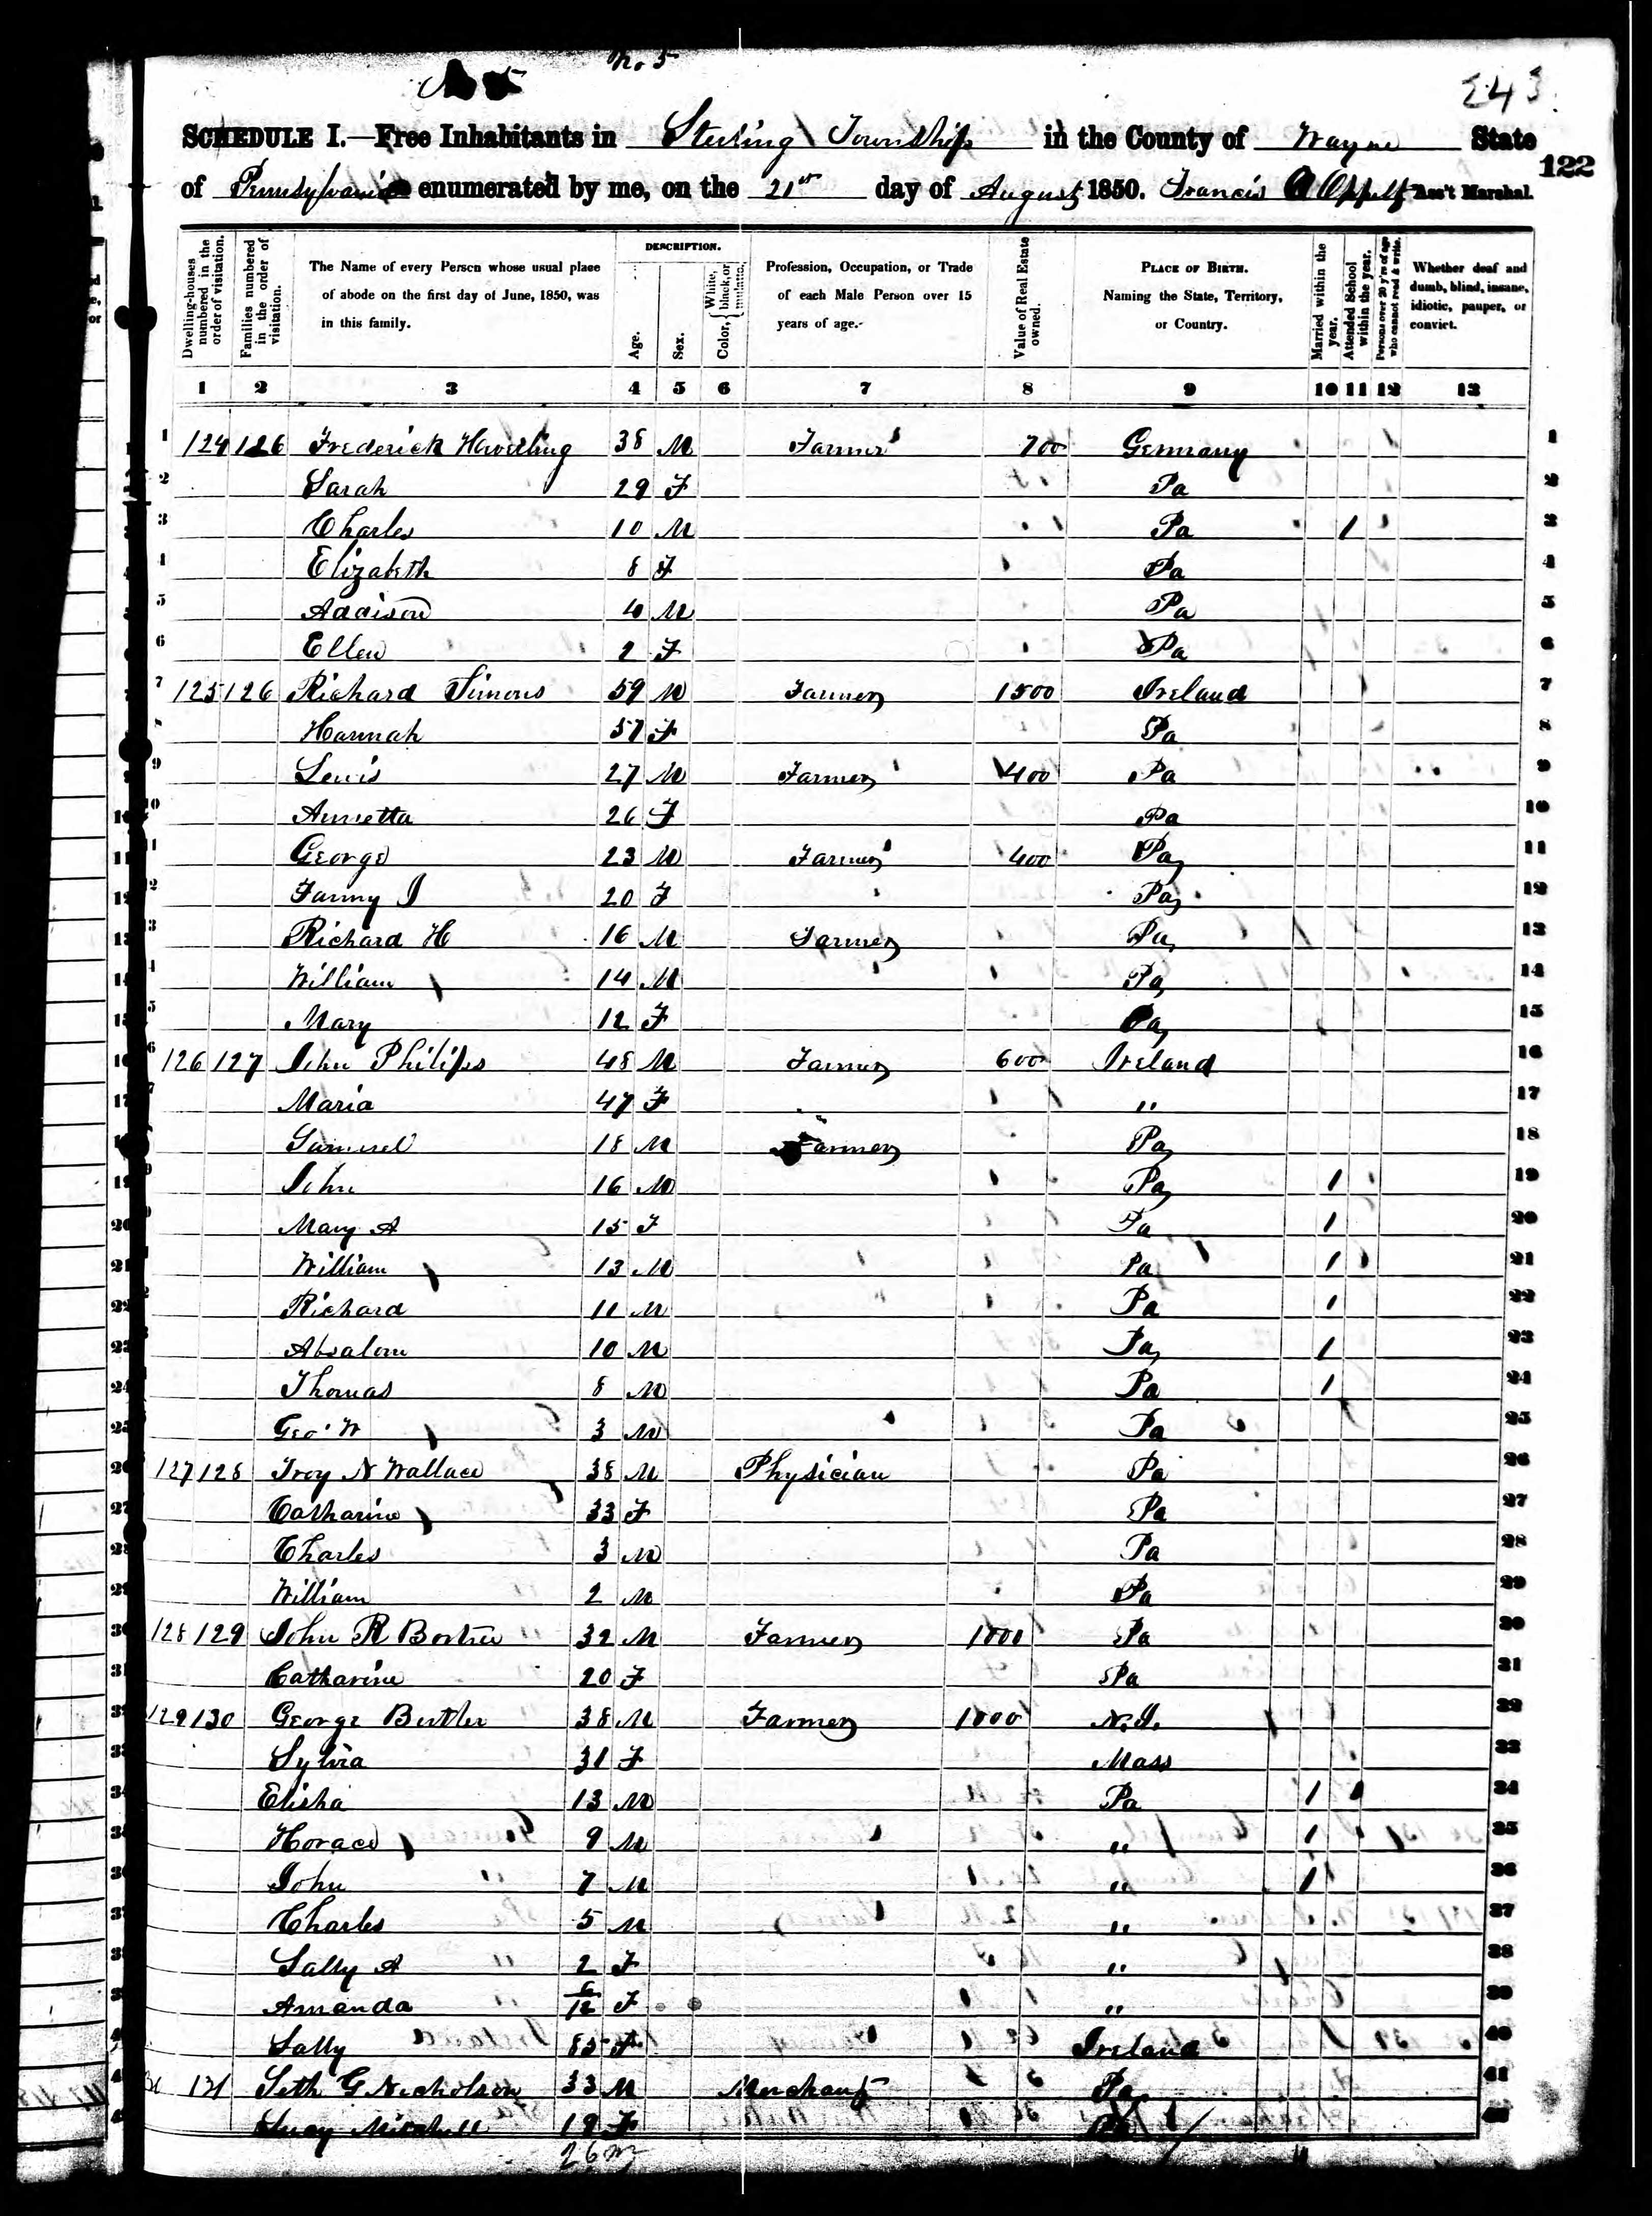 No 5
243
SCHEDULE I.—Free Inhabitants in Sterling Township in the County of Wayne State
122
of Pennsylvania enumerated by me, on the 21st day of August 1850. Francis A Oppelt Ass't Marshal.
Dwelling-houses numbered in the order of visitation.
Families numbered in the order of visitation.
The Name of every Person whose usual place of abode on the first day of June, 1850, was in this family.
DESCRIPTION.
Age.
Sex.
Color, { White, black, or mulatto.
Profession, Occupation, or Trade of each Male Person over 15 years of age.
Value of Real Estate owned.
PLACE OF BIRTH. Naming the State, Territory, or Country.
Married within the year.
Attended School within the year.
Persons over 20 y'rs of age who cannot read & write.
Whether deaf and dumb, blind, insane, idiotic, pauper, or convict.
1 2 3 4 5 6 7 8 9 10 11 12 13
1 124 126 Frederick 38 M Farmer 700 Germany 1
2 Sarah 29 F Pa 2
3 Charles 10 M Pa 1 3
4 Elizabeth 8 F Pa 4
5 Addison 4 M Pa 5
6 Ellen 2 F Pa 6
7 125 126 Richard Simons 59 M Farmer 1500 Ireland 7
8 Hannah 57 F Pa 8
9 Lewis 27 M Farmer 400 Pa 9
10 Annetta 26 F Pa 10
11 George 23 M Farmer 400 Pa 11
12 Fanny J 20 F Pa 12
13 Richard H 16 M Farmer Pa 13
14 William 14 M Pa 14
15 Mary 12 F Pa 15
16 126 127 John Philips 48 M Farmer 600 Ireland 16
17 Maria 47 F " 17
18 Samuel 18 M Farmer Pa 18
19 John 16 M Pa 1 19
20 Mary A 15 F Pa 1 20
21 William 13 M Pa 1 21
22 Richard 11 M Pa 1 22
23 Absalom 10 M Pa 1 23
24 Thomas 8 M Pa 1 24
25 Geo. W 3 M Pa 25
26 127 128 Troy N Wallace 38 M Physician Pa 26
27 Catharine 33 F Pa 27
28 Charles 3 M Pa 28
29 William 2 M Pa 29
30 128 129 John R Bortree 32 M Farmer 1000 Pa 30
31 Catharine 20 F Pa 31
32 129 130 George Butler 38 M Farmer 1000 N.J. 32
33 Sylvia 31 F Mass 33
34 Elisha 13 M Pa 1 34
35 Horace 9 M " 1 35
36 John 7 M " 1 36
37 Charles 5 M " 37
38 Sally A 2 F " 38
39 Amanda 6/12 F " 39
40 Sally 85 F Ireland 40
41 131 Seth G Nicholson 33 M Merchant Pa 41
42 Lucy Mitchell 18 F Pa 42
26 m